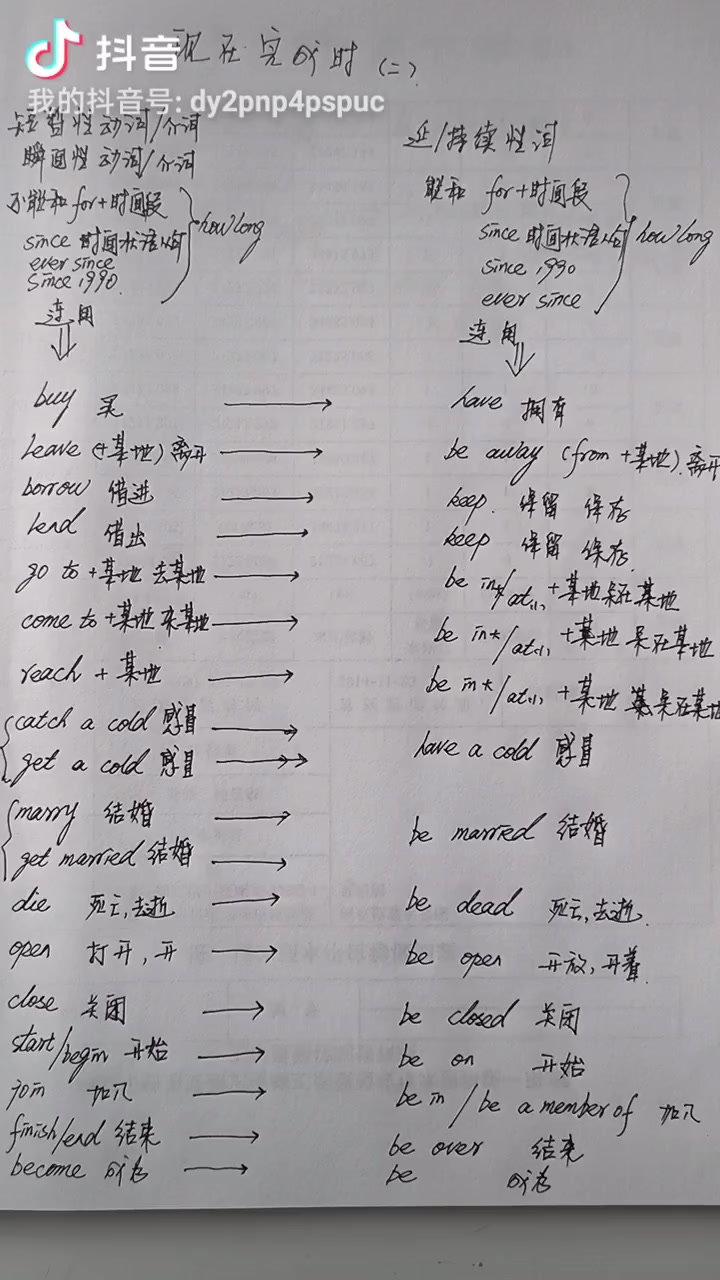 抖音
现在完成时(二)
我的抖音号: dy2pnp4pspuc
短暂性动词/介词
瞬间性动词/介词
不能和 for+时间段
since 时间状语从句
ever since
since 1990.
how long
连用
延/持续性词
能和 for+时间段
since 时间状语从句
since 1990
ever since
how long
连用
buy 买 → have 拥有
leave (+某地) 离开 → be away (from +某地) 离开
borrow 借进 → keep. 保留 保存
lend 借出 → keep 保留 保存
go to +某地 去某地 → be in大/at小 +某地 呆在某地
come to +某地 来某地 → be in大/at小 +某地 呆在某地
reach + 某地 → be in大/at小 +某地 呆在某地
catch a cold 感冒 →
get a cold 感冒 → have a cold 感冒
marry 结婚 →
get married 结婚 → be married 结婚
die 死亡,去逝 → be dead 死亡,去逝.
open 打开,开 → be open 开放,开着
close 关闭 → be closed 关闭
start/begin 开始 → be on 开始
join 加入 → be in / be a member of 加入
finish/end 结束 → be over 结束
become 成为 → be 成为